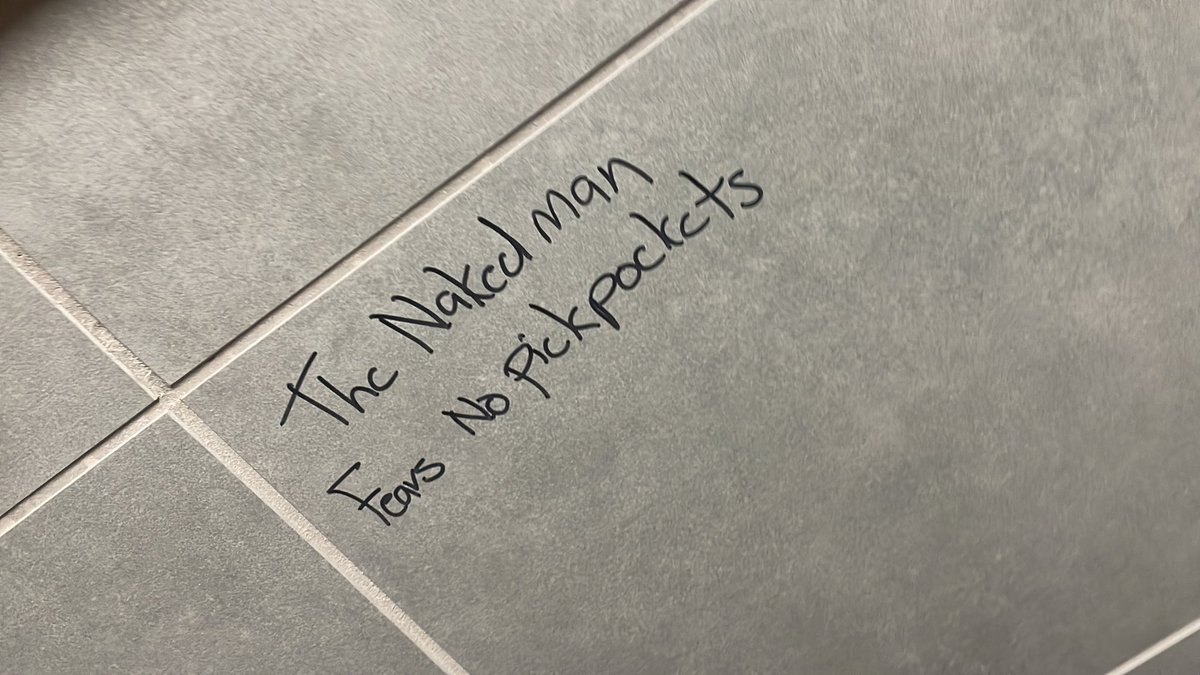 The Naked man
Fears No Pickpockets